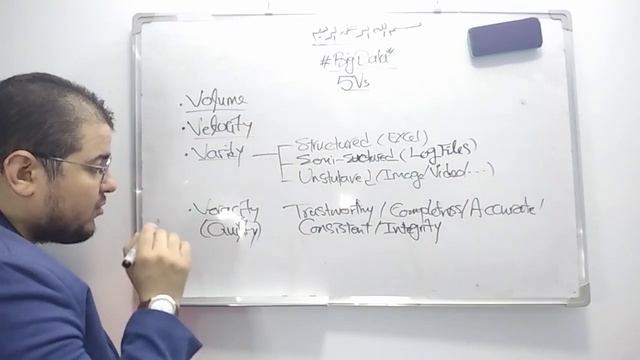 بسم الله الرحمن الرحيم
#Big Data*
5Vs
• Volume
• Velocity
• Variety Structured (Excel)
Semi-structured (Log Files)
Unstructured (Image/Video/...)
• Veracity Trustworthy / Completness / Accurate /
(Quality) Consistent / Integrity